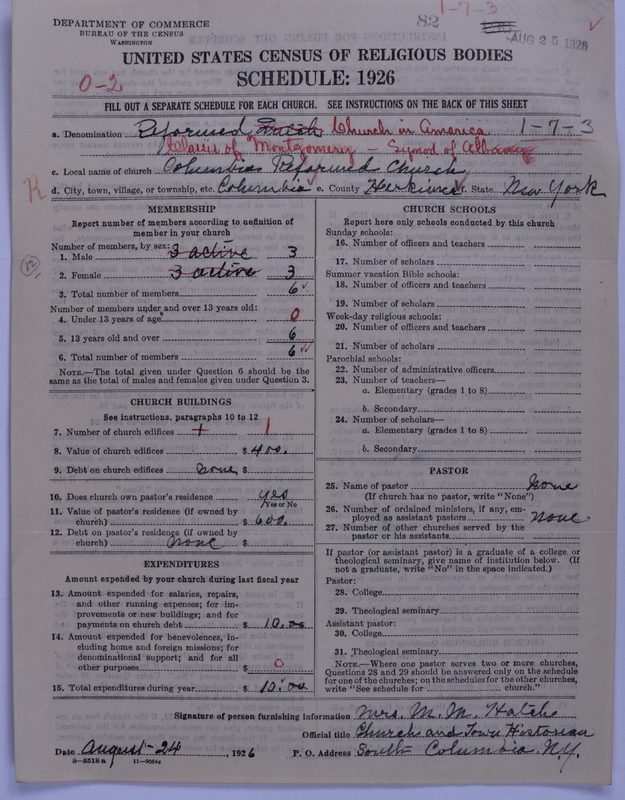 DEPARTMENT OF COMMERCE
BUREAU OF THE CENSUS
WASHINGTON
82
1-7-3
AUG 25 1926
UNITED STATES CENSUS OF RELIGIOUS BODIES
SCHEDULE: 1926
0-2
FILL OUT A SEPARATE SCHEDULE FOR EACH CHURCH. SEE INSTRUCTIONS ON THE BACK OF THIS SHEET
a. Denomination Reformed Dutch Church in America 1-7-3
Classis of Montgomery - Synod of Albany
c. Local name of church Columbia Reformed Church
R d. City, town, village, or township, etc. Columbia e. County Herkimer f. State New York
MEMBERSHIP
Report number of members according to definition of member in your church
Number of members, by sex:
1. Male 3 active 3
2. Female 3 active 3
12
3. Total number of members 6
Number of members under and over 13 years old:
4. Under 13 years of age 0
5. 13 years old and over 6
6. Total number of members 6
NOTE.—The total given under Question 6 should be
same as the total of males and females given under Question 3.
CHURCH BUILDINGS
See instructions, paragraphs 10 to 12
7. Number of church edifices 1 1
8. Value of church edifices $ 400.
9. Debt on church edifices none $
10. Does church own pastor's residence yes
Yes or No
11. Value of pastor's residence (if owned by
church) $ 600.
12. Debt on pastor's residence (if owned by
church) none $
EXPENDITURES
Amount expended by your church during last fiscal year
13. Amount expended for salaries, repairs,
and other running expenses; for im-
provements or new buildings; and for
payments on church debt $ 10.00
14. Amount expended for benevolences, in-
cluding home and foreign missions; for
denominational support; and for all
other purposes $ 0
15. Total expenditures during year $ 10.00
CHURCH SCHOOLS
Report here only schools conducted by this church
Sunday schools:
16. Number of officers and teachers
17. Number of scholars
Summer vacation Bible schools:
18. Number of officers and teachers
19. Number of scholars
Week-day religious schools:
20. Number of officers and teachers
21. Number of scholars
Parochial schools:
22. Number of administrative officers
23. Number of teachers—
a. Elementary (grades 1 to 8)
b. Secondary
24. Number of scholars—
a. Elementary (grades 1 to 8)
b. Secondary
PASTOR
25. Name of pastor None
(If church has no pastor, write "None")
26. Number of ordained ministers, if any, em-
ployed as assistant pastors none
27. Number of other churches served by the
pastor or his assistants
If pastor (or assistant pastor) is a graduate of a college or
theological seminary, give name of institution below. (If
not a graduate, write "No" in the space indicated.)
Pastor:
28. College
29. Theological seminary
Assistant pastor:
30. College
31. Theological seminary
NOTE.—Where one pastor serves two or more churches,
Questions 28 and 29 should be answered only on the schedule
for one of the churches; on the schedules for the other churches,
write "See schedule for church."
Signature of person furnishing information Mrs. M. M. Hatch
Official title Church and Town Historian
Date August 24 1926 P. O. Address South Columbia N.Y.
8—5518 a 11—9054a